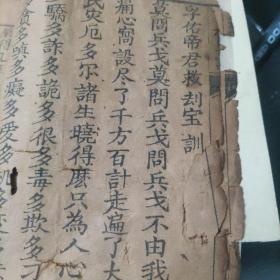 孚佑帝君救刦宝訓
莫問兵戈莫問兵戈問兵戈不由我
痛心窩設尽了千方百計走遍了大
民災厄多尔諸生曉得麽只為人心
驕多詐多詭多很多毒多欺多
貪多嗔多癡多愛多